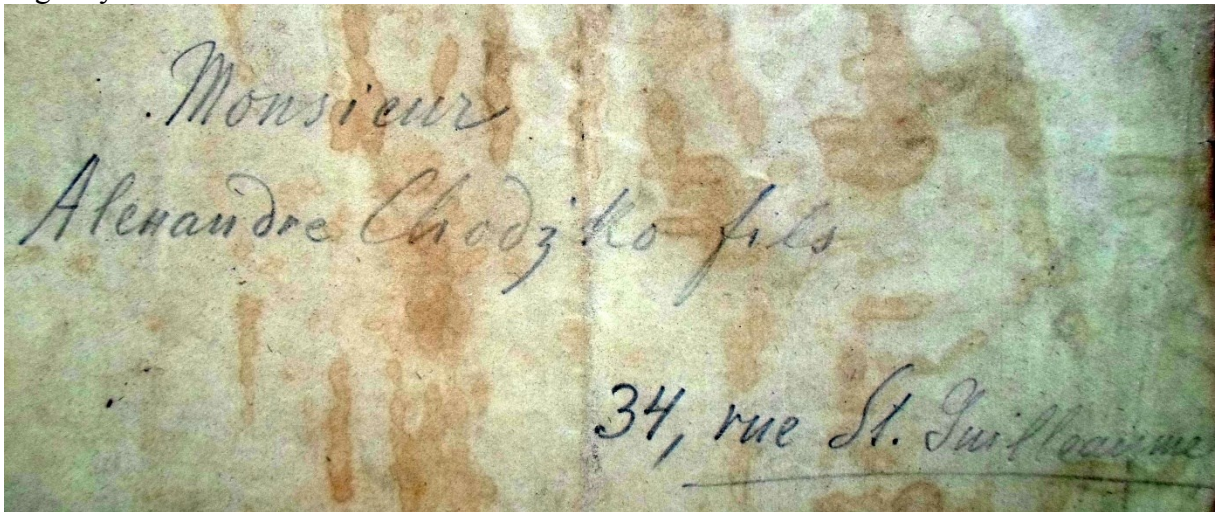 Monsieur
Alexandre Chodzko fils
34, rue St. Guilleaume